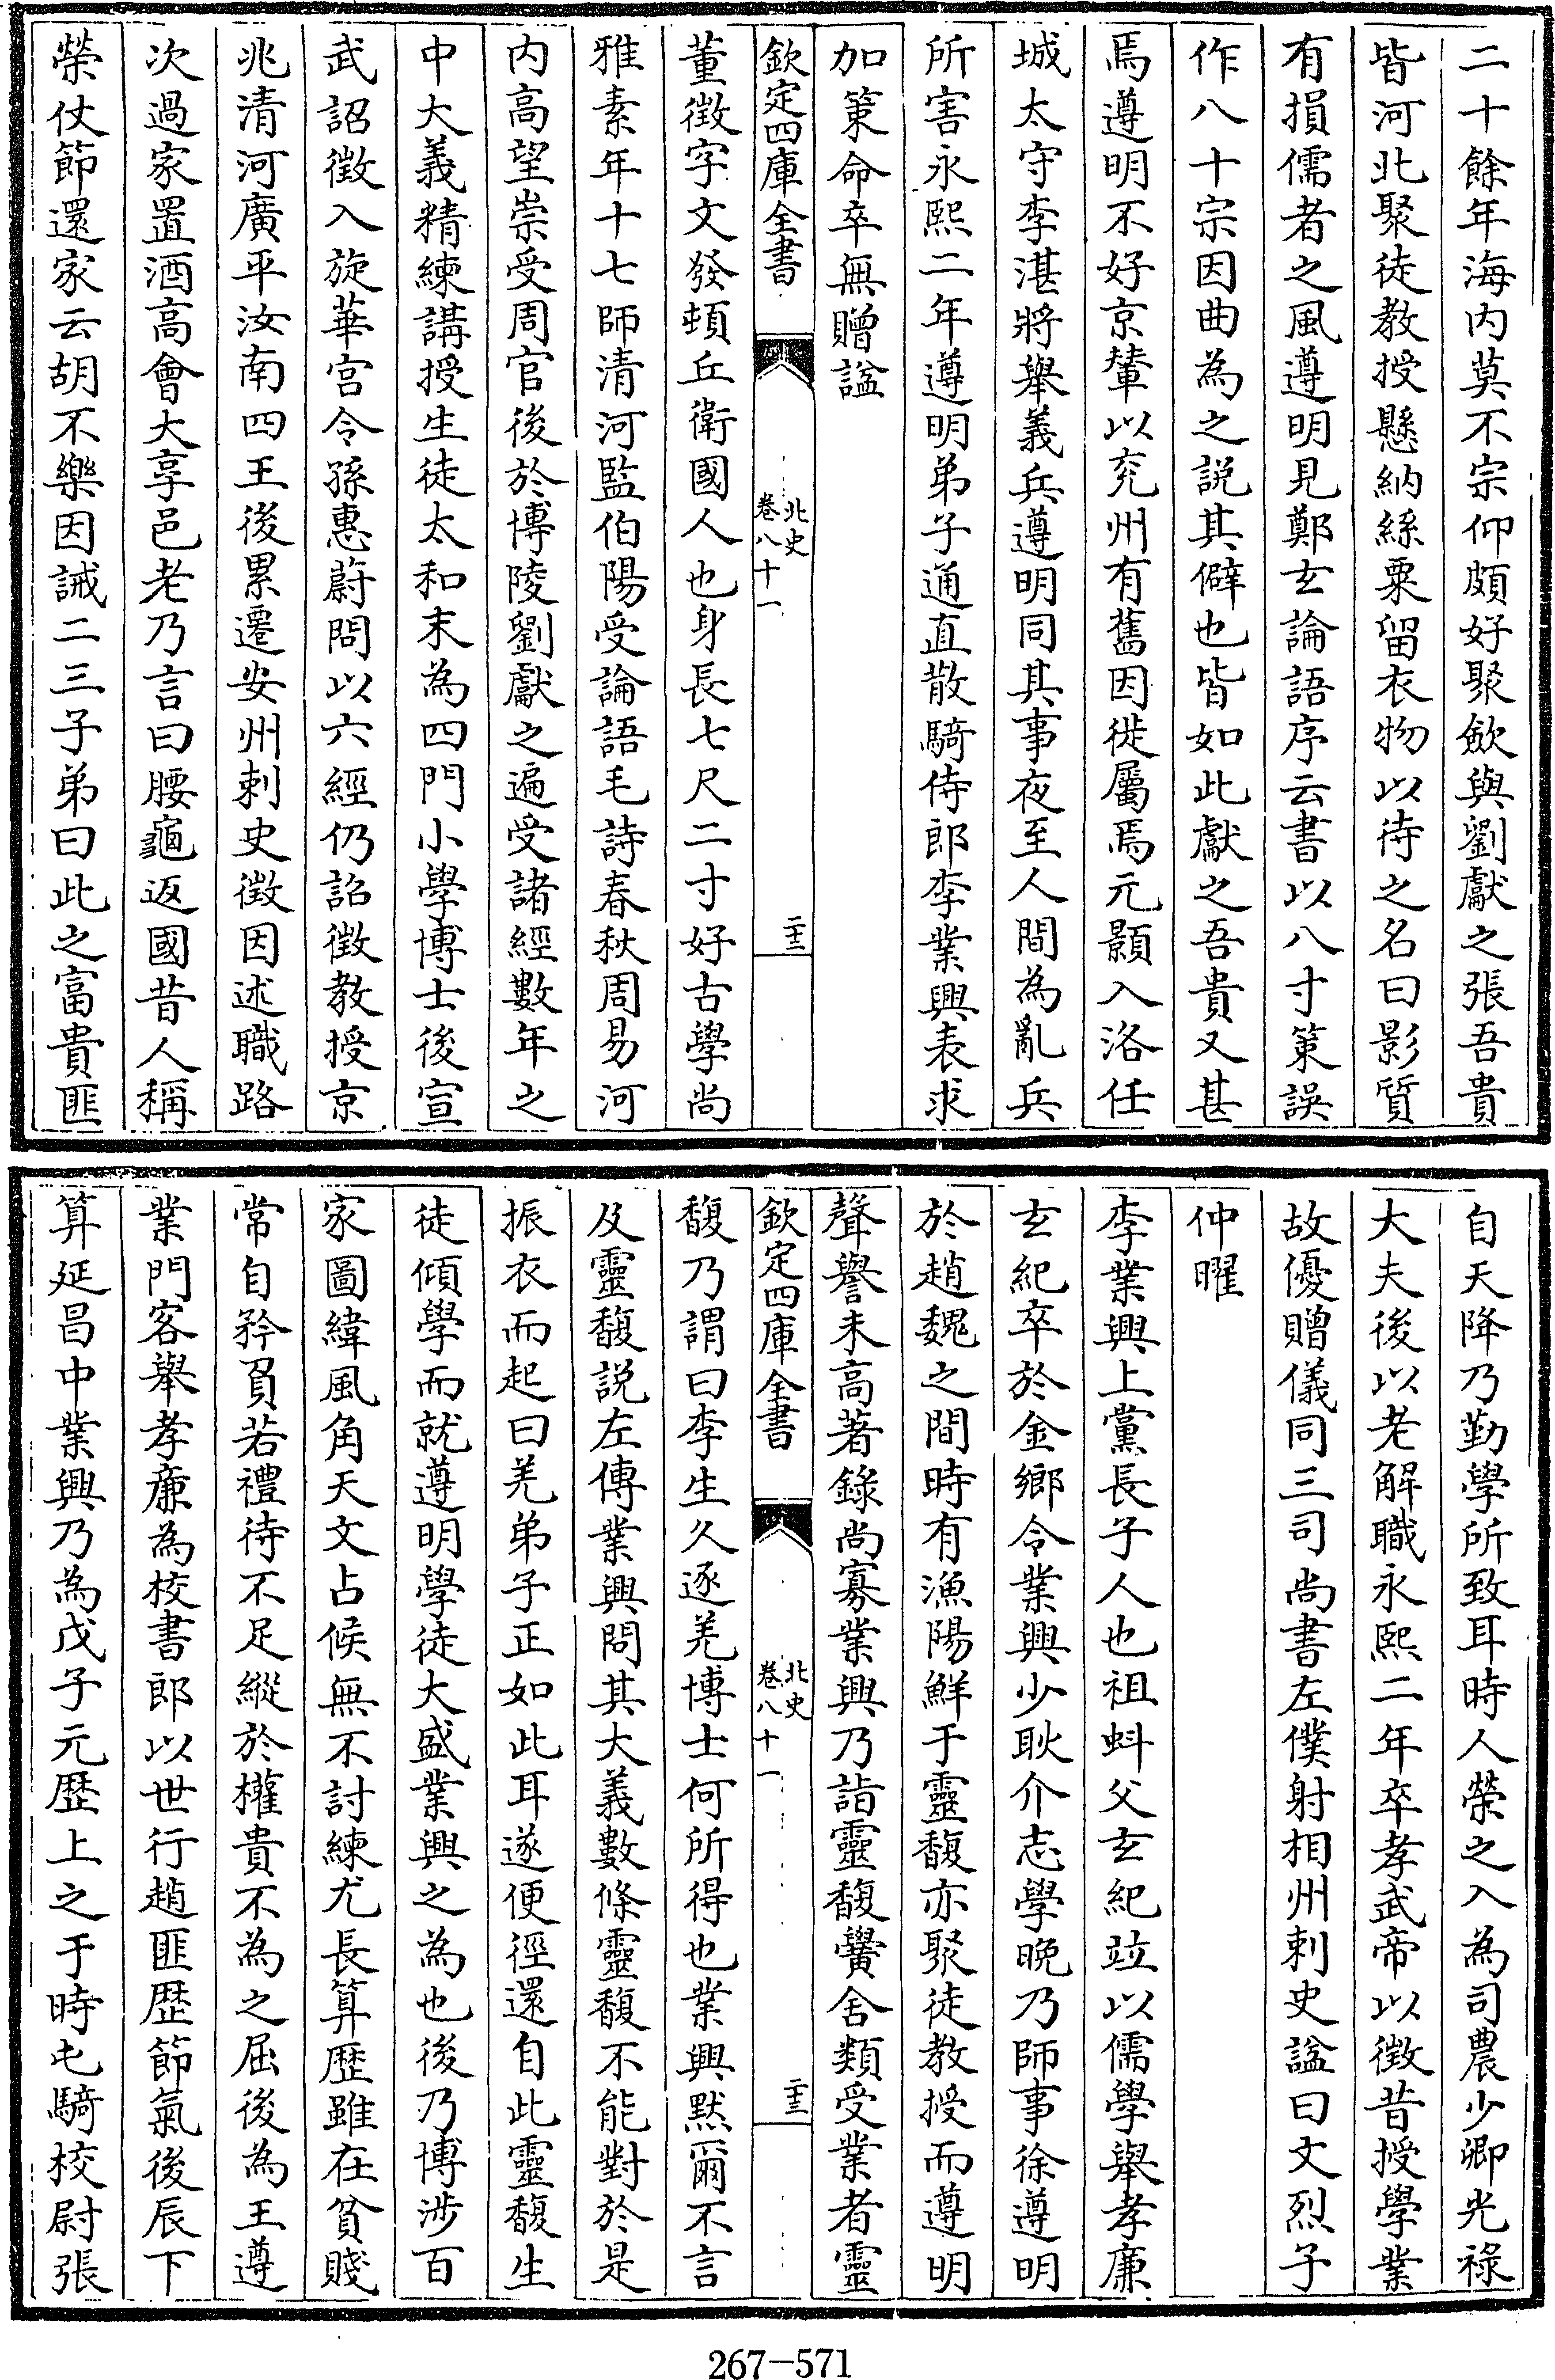 二十餘年海内莫不宗仰頗好聚歛與劉獻之張吾貴
皆河北聚徒教授懸納絲粟留衣物以待之名曰影質
有損儒者之風遵明見鄭玄論語序云書以八寸策誤
作八十宗因曲為之説其僻也皆如此獻之吾貴又甚
焉遵明不好京輦以兖州有舊因徙屬焉元顥入洛任
城太守李湛將舉義兵遵明同其事夜至人間為亂兵
所害永熙二年遵明弟子通直散騎侍郎李業興表求
加策命卒無贈諡
欽定四庫全書
北史
卷八十一
二十三
董徵字文發頓丘衛國人也身長七尺二寸好古學尚
雅素年十七師清河監伯陽受論語毛詩春秋周易河
内高望崇受周官後於博陵劉獻之遍受諸經數年之
中大義精練講授生徒太和末為四門小學博士後宣
武詔徵入旋華宫令孫惠蔚問以六經仍詔徵教授京
兆清河廣平汝南四王後累遷安州刺史徵因述職路
次過家置酒高會大享邑老乃言曰腰龜返國昔人稱
榮仗節還家云胡不樂因誡二三子弟曰此之富貴匪
自天降乃勤學所致耳時人榮之入為司農少卿光祿
大夫後以老解職永熙二年卒孝武帝以徵昔授學業
故優贈儀同三司尚書左僕射相州刺史諡曰文烈子
仲曜
李業興上黨長子人也祖蚪父玄紀竝以儒學舉孝廉
玄紀卒於金鄉令業興少耿介志學晚乃師事徐遵明
於趙魏之間時有漁陽鮮于靈馥亦聚徒教授而遵明
聲譽未高著錄尚寡業興乃詣靈馥黌舍類受業者靈
欽定四庫全書
北史
卷八十一
二十三
馥乃謂曰李生久逐羌博士何所得也業興默爾不言
及靈馥説左傳業興問其大義數條靈馥不能對於是
振衣而起曰羌弟子正如此耳遂便徑還自此靈馥生
徒傾學而就遵明學徒大盛業興之為也後乃博涉百
家圖緯風角天文占候無不討練尤長算歴雖在貧賤
常自矜負若禮待不足縱於權貴不為之屈後為王遵
業門客舉孝廉為校書郎以世行趙匪歴節氣後辰下
算延昌中業興乃為戊子元歴上之于時屯騎校尉張
267-571